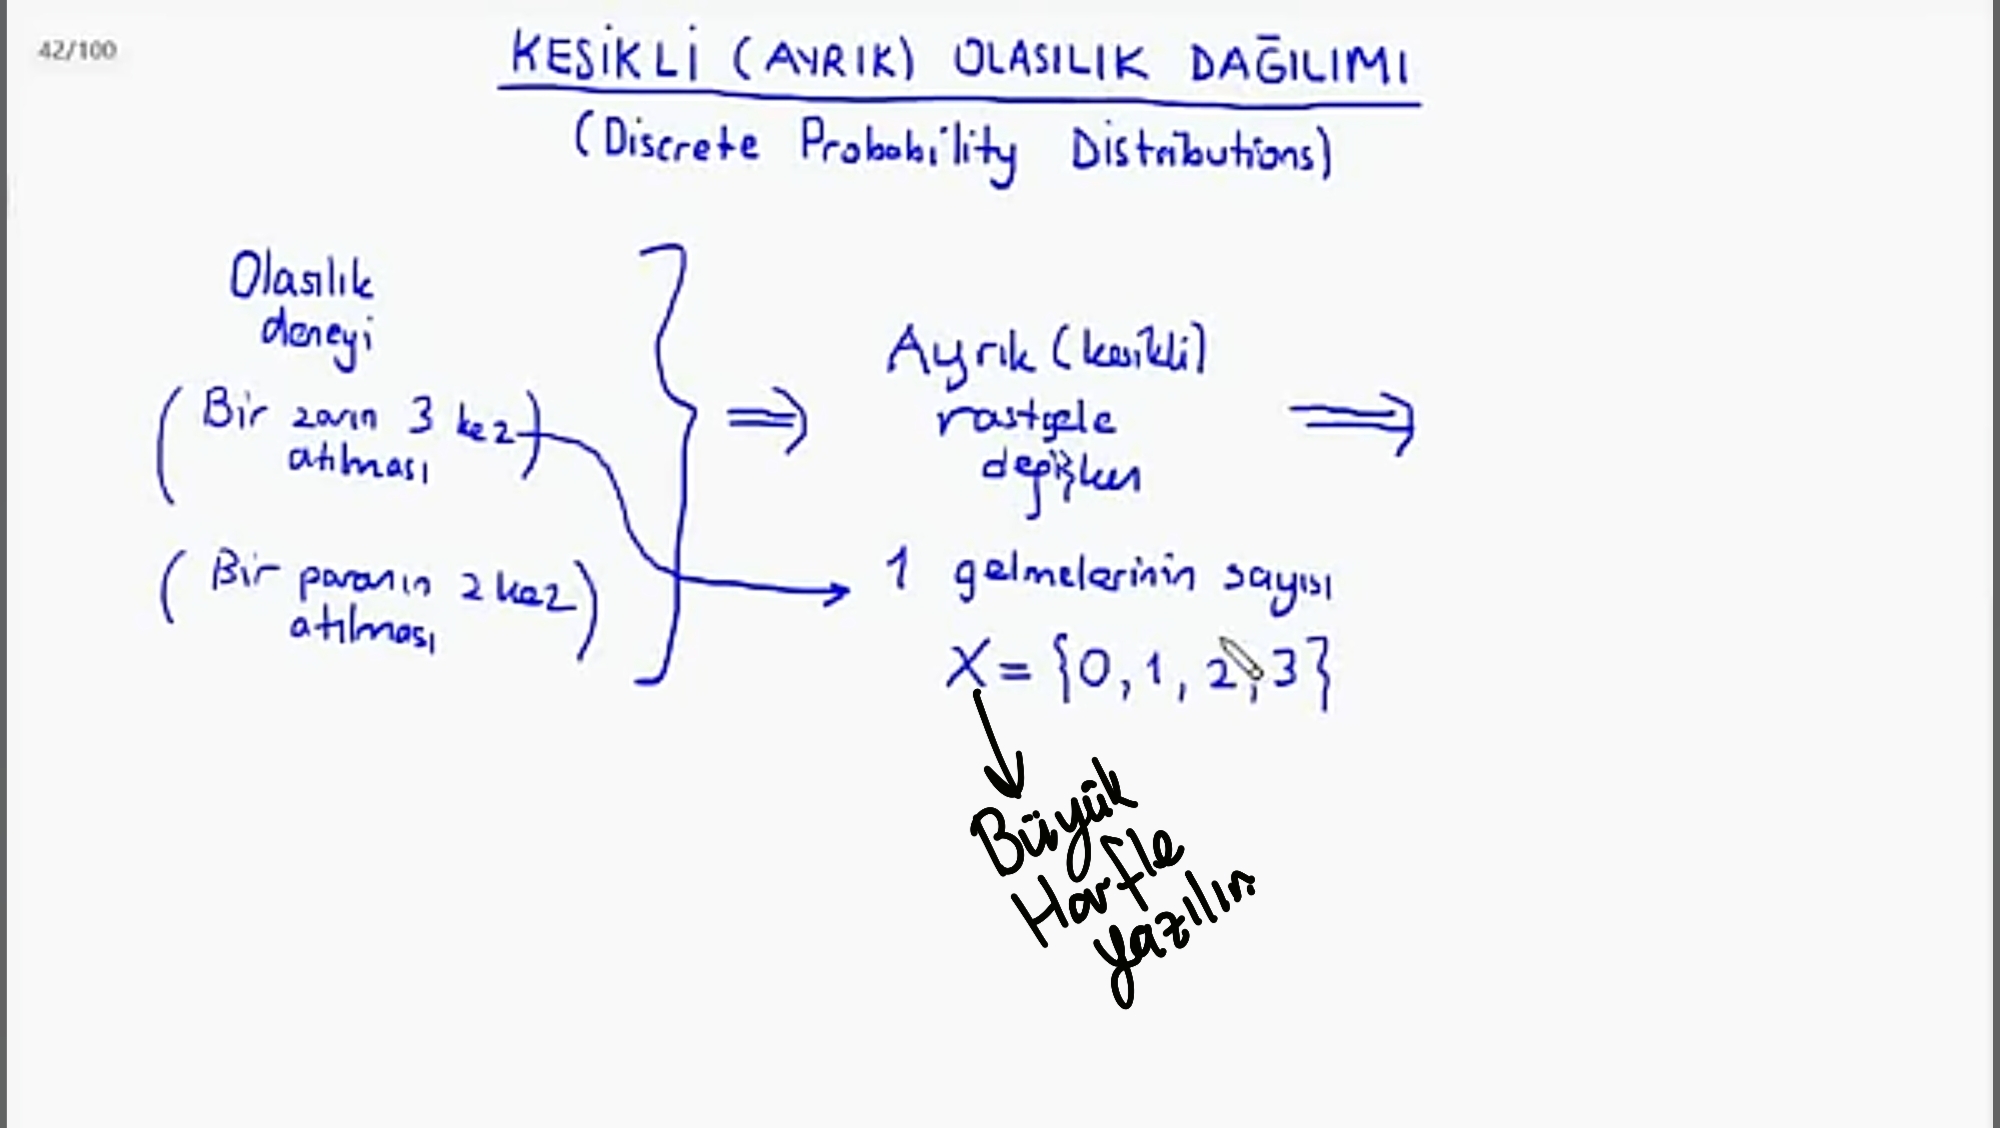 42/100
KESİKLİ (AYRIK) OLASILIK DAĞILIMI
(Discrete Probability Distributions)
Olasılık
deneyi
(Bir zarın 3 kez)
atılması
(Bir paranın 2 kez)
atılması
⇒
Ayrık (kesikli)
rastgele
değişken
⇒
1 gelmelerinin sayısı
X = {0, 1, 2, 3}
Büyük
Harfle
yazılır.